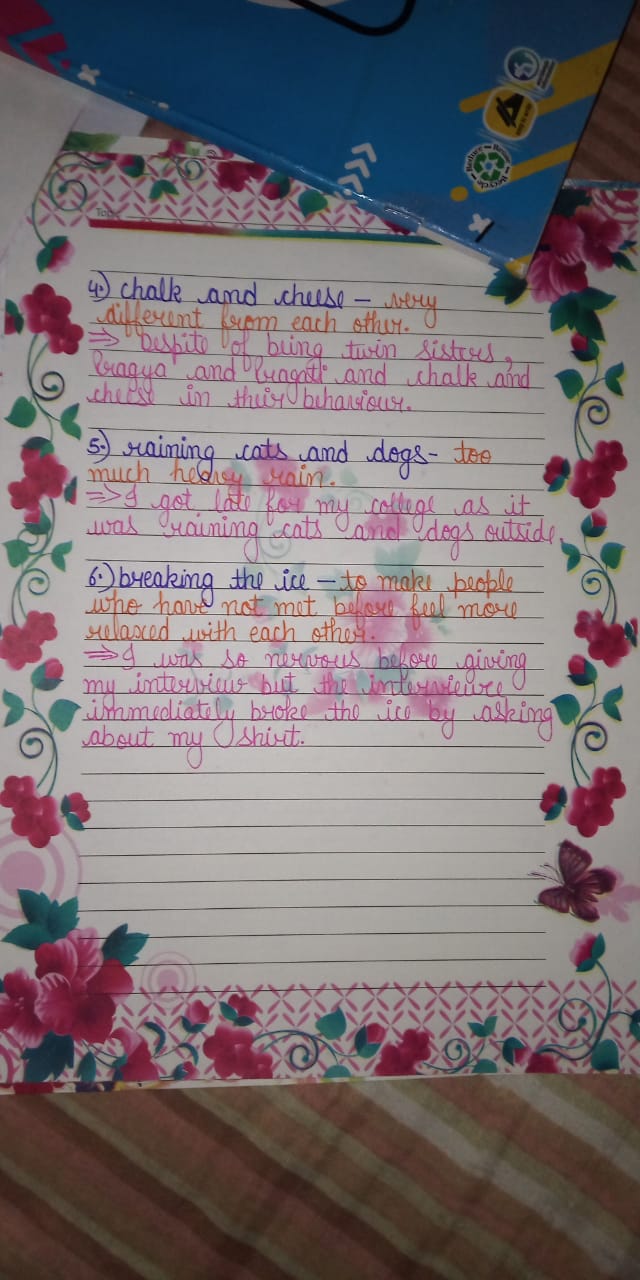 Reduce Reuse Recycle
4.) chalk and cheese – very
different from each other.
⇒ Despite of being twin sisters,
Pragya and Pragati and chalk and
cheese in their behaviour.
5.) raining cats and dogs- too
much heavy rain.
⇒ I got late for my college as it
was raining cats and dogs outside.
6.) breaking the ice – to make people
who have not met before feel more
relaxed with each other.
⇒ I was so nervous before giving
my interview but the
immediately broke the ice by asking
about my shirt.